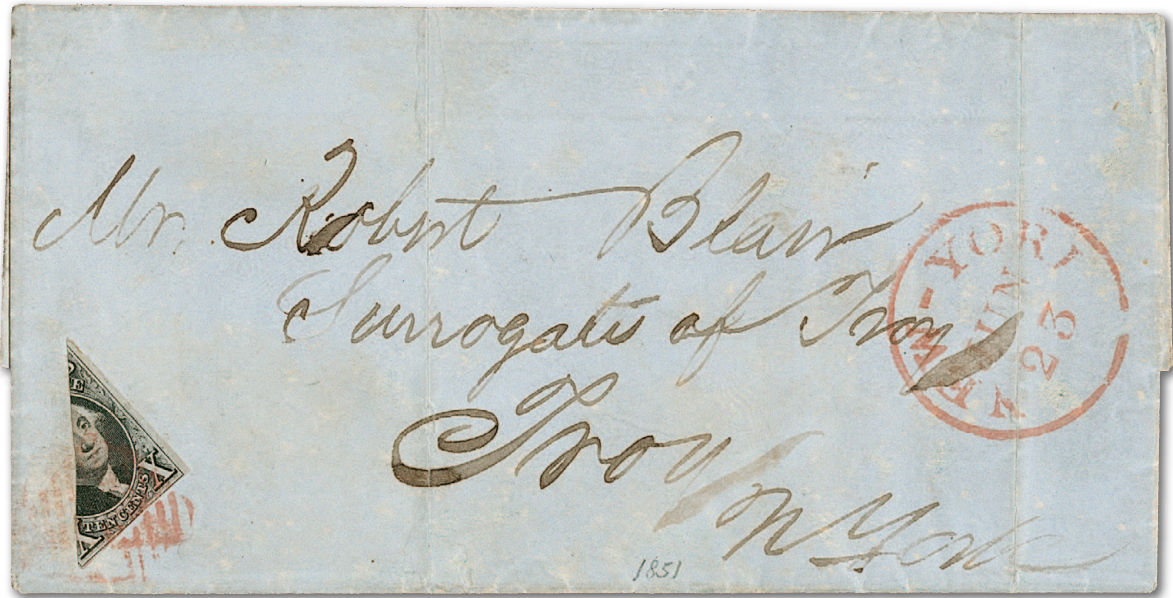 Mr. Robert Blair
Surrogate of Troy
Troy
N York
NEW-YORK
JUN
23
TEN CENTS
X
X
1851